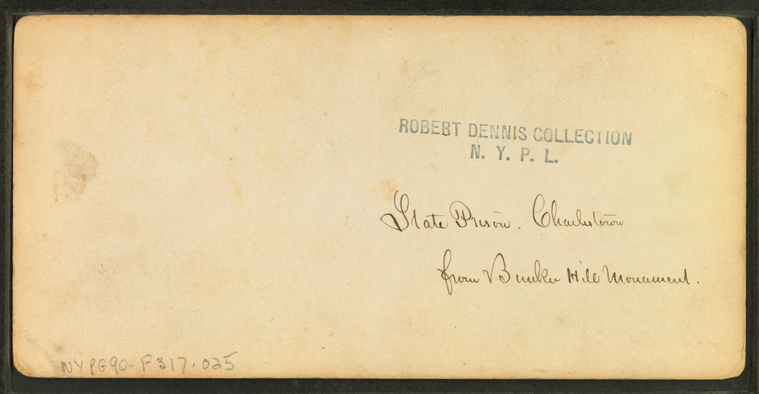 ROBERT DENNIS COLLECTION
N. Y. P. L.
State Prison. Charlestown
from Bunker Hill Monument.
NYPG90-F317.025